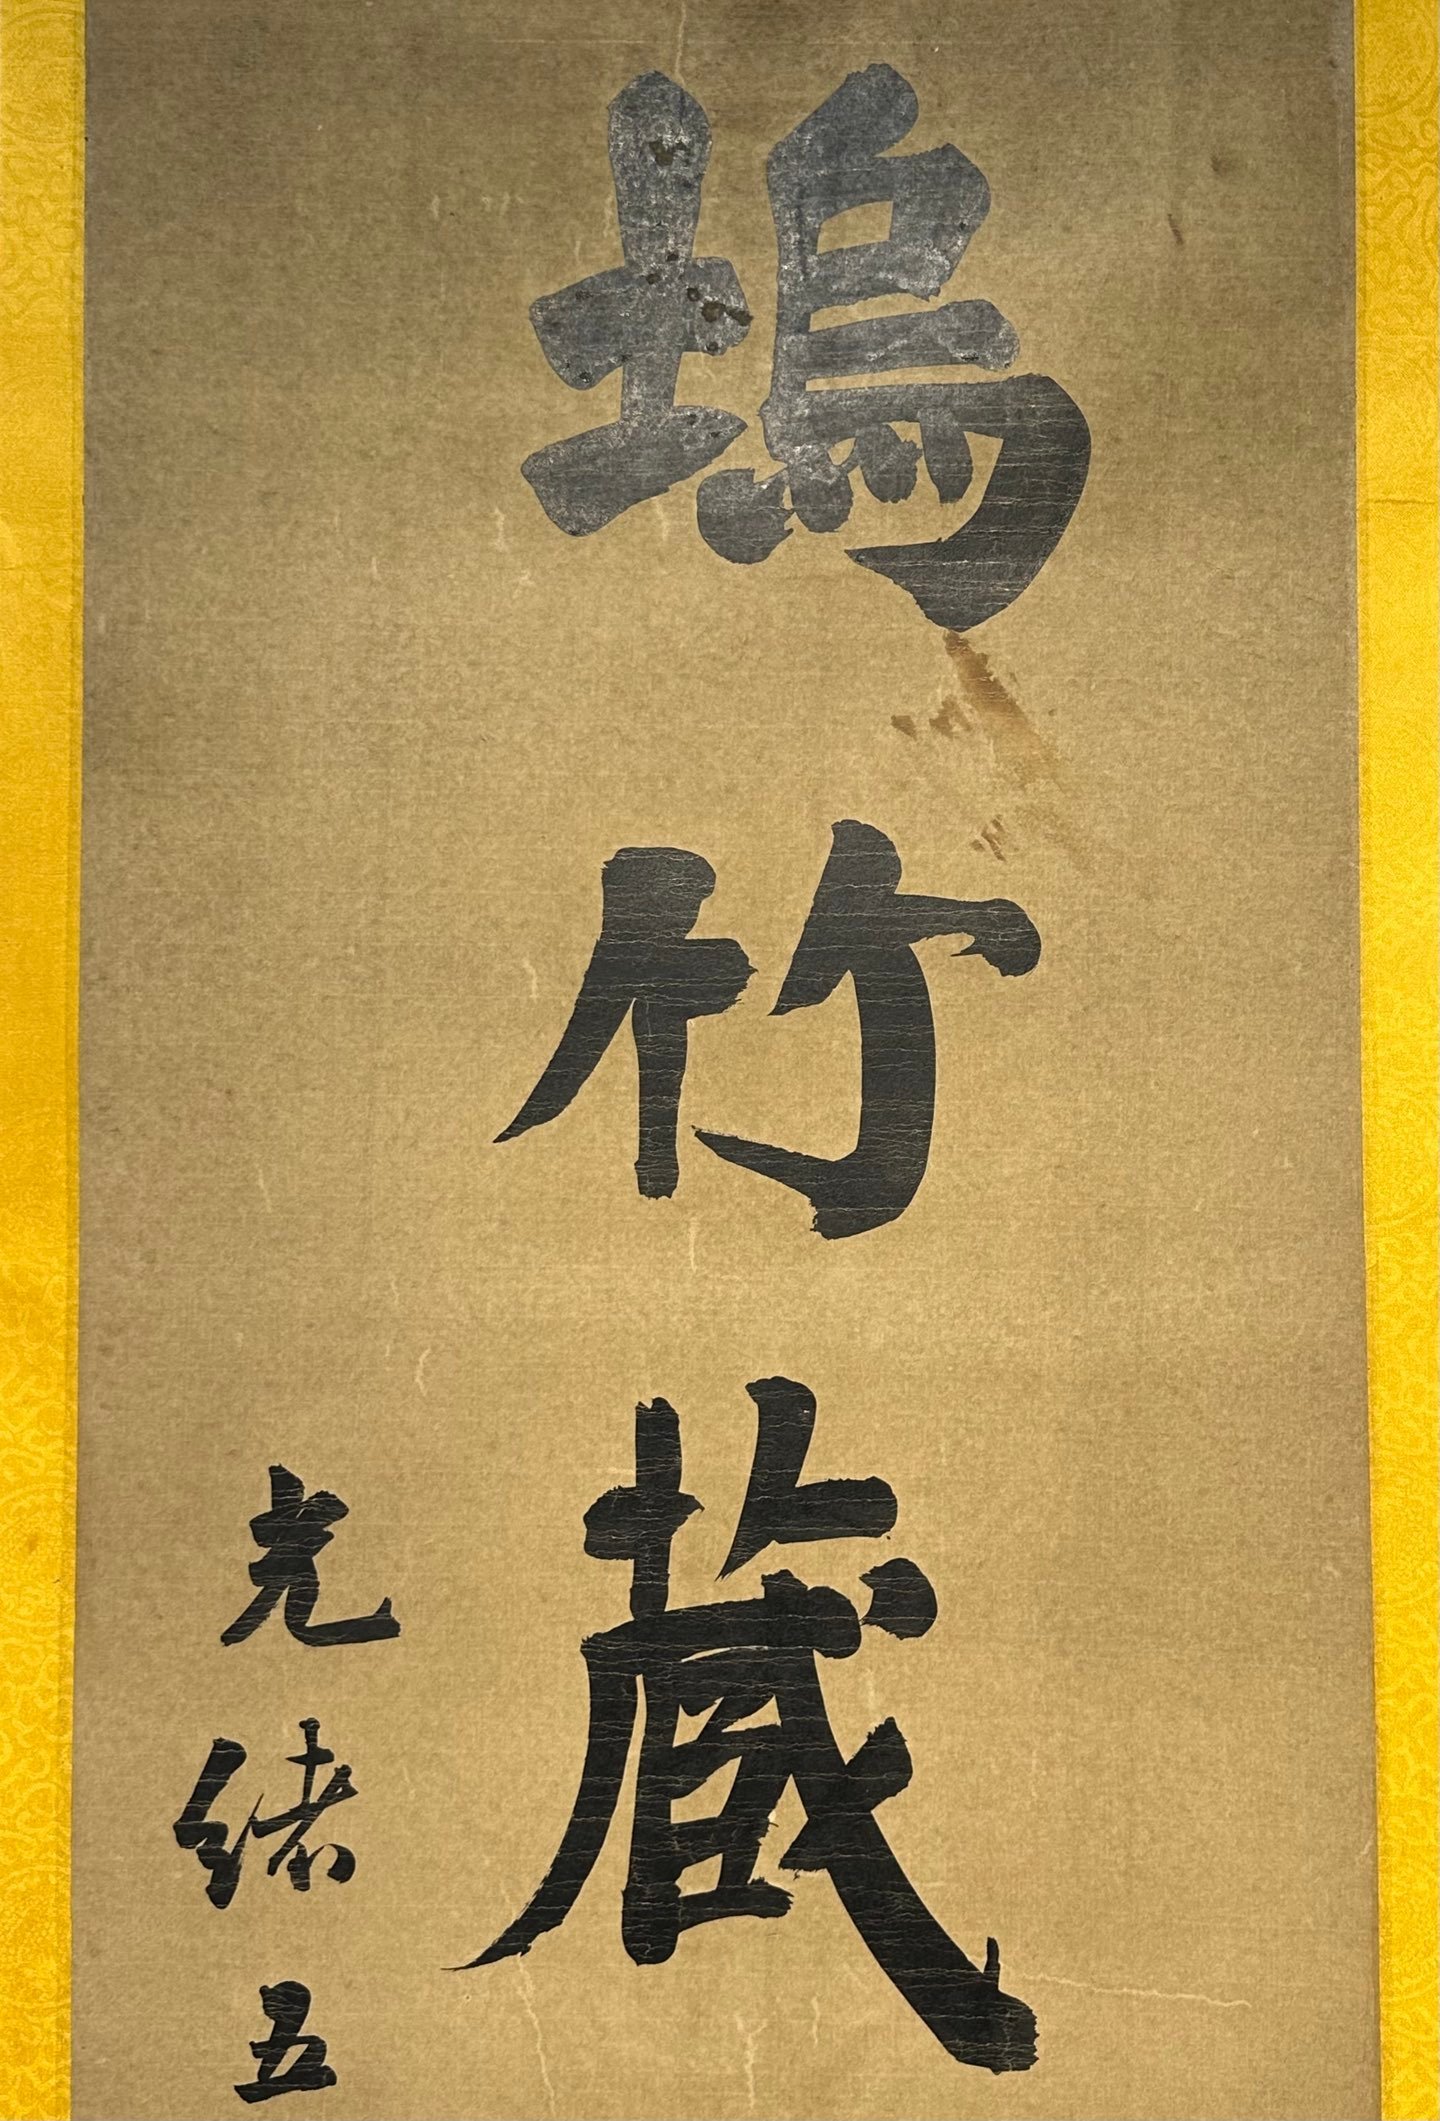 塢竹藏
光緒五